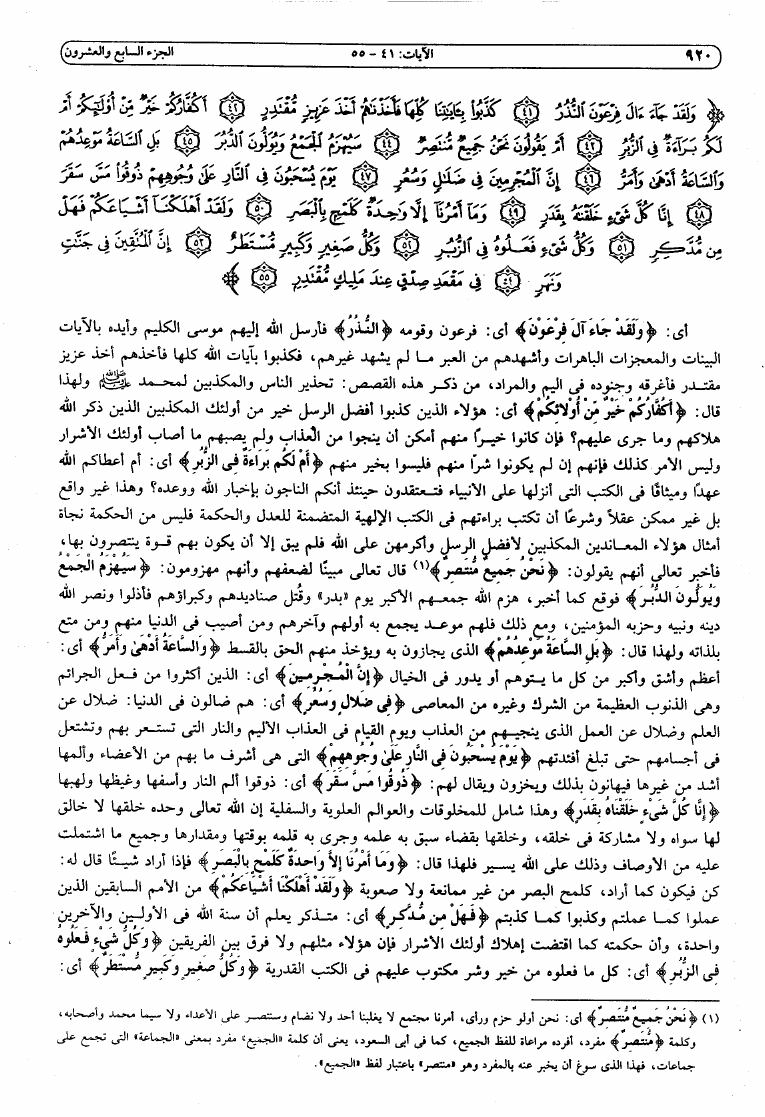 ٩٢٠ الآيات: ٤١ - ٥٥ الجزء السابع والعشرون
﴿ وَلَقَدْ جَاءَ ءَالَ فِرْعَوْنَ النُّذُرُ ﴿٤١﴾ كَذَّبُوا بِـَٔايَاتِنَا كُلِّهَا فَأَخَذْنَاهُمْ أَخْذَ عَزِيزٍ مُّقْتَدِرٍ ﴿٤٢﴾ أَكُفَّارُكُمْ خَيْرٌ مِّنْ أُولَٰئِكُمْ أَمْ
لَكُم بَرَاءَةٌ فِى الزُّبُرِ ﴿٤٣﴾ أَمْ يَقُولُونَ نَحْنُ جَمِيعٌ مُّنتَصِرٌ ﴿٤٤﴾ سَيُهْزَمُ الْجَمْعُ وَيُوَلُّونَ الدُّبُرَ ﴿٤٥﴾ بَلِ السَّاعَةُ مَوْعِدُهُمْ
وَالسَّاعَةُ أَدْهَىٰ وَأَمَرُّ ﴿٤٦﴾ إِنَّ الْمُجْرِمِينَ فِى ضَلَالٍ وَسُعُرٍ ﴿٤٧﴾ يَوْمَ يُسْحَبُونَ فِى النَّارِ عَلَىٰ وُجُوهِهِمْ ذُوقُوا مَسَّ سَقَرَ
﴿٤٨﴾ إِنَّا كُلَّ شَىْءٍ خَلَقْنَاهُ بِقَدَرٍ ﴿٤٩﴾ وَمَا أَمْرُنَا إِلَّا وَاحِدَةٌ كَلَمْحٍ بِالْبَصَرِ ﴿٥٠﴾ وَلَقَدْ أَهْلَكْنَا أَشْيَاعَكُمْ فَهَلْ
مِن مُّدَّكِرٍ ﴿٥١﴾ وَكُلُّ شَىْءٍ فَعَلُوهُ فِى الزُّبُرِ ﴿٥٢﴾ وَكُلُّ صَغِيرٍ وَكَبِيرٍ مُّسْتَطَرٌ ﴿٥٣﴾ إِنَّ الْمُتَّقِينَ فِى جَنَّاتٍ
وَنَهَرٍ ﴿٥٤﴾ فِى مَقْعَدِ صِدْقٍ عِندَ مَلِيكٍ مُّقْتَدِرٍ ﴿٥٥﴾ ﴾
أى: ﴿وَلَقَدْ جَاءَ آلَ فِرْعَوْنَ﴾ أى: فرعون وقومه ﴿النُّذُرُ﴾ فأرسل الله إليهم موسى الكليم وأيده بالآيات
البينات والمعجزات الباهرات وأشهدهم من العبر مـا لم يشهد غيرهم، فكذبوا بآيات الله كلها فأخذهم أخذ عزيز
مقتـدر فأغرقه وجنوده فى اليم والمراد، من ذكـر هذه القصص: تحذير الناس والمكذبين لمحـمد ﷺ ولهذا
قال: ﴿أَكُفَّارُكُمْ خَيْرٌ مِّنْ أُولَائِكُمْ﴾ أى: هؤلاء الذين كذبوا أفضل الرسل خير من أولئك المكذبين الذين ذكر الله
هلاكهم وما جرى عليهم؟ فإن كانوا خيـرًا منهم أمكن أن ينجوا من العذاب ولم يصبهم ما أصاب أولئك الأشرار
وليس الأمر كذلك فإنهم إن لم يكونوا شرًا منهم فليسوا بخير منهم ﴿أَمْ لَكُم بَرَاءَةٌ فِى الزُّبُرِ﴾ أى: أم أعطاكم الله
عهدًا وميثاقًا فى الكتب التى أنزلها على الأنبياء فتـعتقدون حينئذ أنكم الناجون بإخبار الله ووعده؟ وهذا غير واقع
بل غير ممكن عقلاً وشرعًا أن تكتب براءتهم فى الكتب الإلهية المتضمنة للعدل والحكمة فليس من الحكمة نجاة
أمثال هؤلاء المعـاندين المكذبين لأفضل الرسل وأكرمهن على الله فلم يبق إلا أن يكون بهم قـوة ينتصرون بها،
فأخبر تعالى أنهم يقولون: ﴿نَحْنُ جَمِيعٌ مُّنتَصِرٌ﴾(١) قال تعالى مبينًا لضعفهم وأنهم مهزومون: ﴿سَيُهْزَمُ الْجَمْعُ
وَيُوَلُّونَ الدُّبُرَ﴾ فوقع كما أخبر، هزم الله جمعـهم الأكبر يوم «بدر» وقُتل صناديدهم وكبراؤهم فأذلوا ونصر الله
دينه ونبيه وحزبه المؤمنين، ومع ذلك فلهم موعـد يجمع به أولهم وآخرهم ومن أصيب فى الدنيا منهم ومن متع
بلذاته ولهذا قال: ﴿بَلِ السَّاعَةُ مَوْعِدُهُمْ﴾ الذى يجازون به ويؤخذ منهم الحق بالقسط ﴿وَالسَّاعَةُ أَدْهَىٰ وَأَمَرُّ﴾ أى:
أعظم وأشق وأكبر من كل ما يـتوهم أو يدور فى الخيال ﴿إِنَّ الْمُجْرِمِينَ﴾ أى: الذين أكثروا من فـعل الجرائم
وهى الذنوب العظيمة من الشرك وغيره من المعاصى ﴿فِى ضَلَالٍ وَسُعُرٍ﴾ أى: هم ضالون فى الدنيا: ضلال عن
العلم وضلال عن العمل الذى ينجيـهم من العذاب ويوم القيام فى العذاب الأليم والنار التى تسـتعر بهم وتشتعل
فى أجسامهم حتى تبلغ أفئدتهم ﴿يَوْمَ يُسْحَبُونَ فِى النَّارِ عَلَىٰ وُجُوهِهِمْ﴾ التى هى أشرف ما بهم من الأعضاء وألمها
أشد من غيرها فيهانون بذلك ويخزون ويقال لهم: ﴿ذُوقُوا مَسَّ سَقَرَ﴾ أى: ذوقوا ألم النار وأسفها وغيظها ولهبها
﴿إِنَّا كُلَّ شَىْءٍ خَلَقْنَاهُ بِقَدَرٍ﴾ وهذا شامل للمخلوقات والعوالم العلوية والسفلية إن الله تعالى وحده خلقها لا خالق
لها سواه ولا مشاركة فى خلقه، وخلقها بقضاء سبق به علمه وجرى به قلمه بوقتها ومقدارها وجميع ما اشتملت
عليه من الأوصاف وذلك على الله يسـير فلهذا قال: ﴿وَمَا أَمْرُنَا إِلاَّ وَاحِدَةٌ كَلَمْحٍ بِالْبَصَرِ﴾ فإذا أراد شيـئًا قال له:
كن فيكون كما أراد، كلمح البصر من غير ممانعة ولا صعوبة ﴿وَلَقَدْ أَهْلَكْنَا أَشْيَاعَكُمْ﴾ من الأمم السابقين الذين
عملوا كمـا عملتم وكذبوا كمـا كذبتم ﴿فَهَلْ مِن مُّدَّكِرٍ﴾ أى: متـذكر يعلم أن سنة الله فى الأولـين والآخرين
واحدة، وأن حكمته كما اقتضت إهلاك أولئك الأشرار فإن هؤلاء مثلهم ولا فرق بين الفريقين ﴿وَكُلُّ شَىْءٍ فَعَلُوهُ
فِى الزُّبُرِ﴾ أى: كل ما فعلوه من خير وشر مكتوب عليهم فى الكتب القدرية ﴿وَكُلُّ صَغِيرٍ وَكَبِيرٍ مُّسْتَطَرٌ﴾ أى:
(١) ﴿نَحْنُ جَمِيعٌ مُّنتَصِرٌ﴾ أى: نحن أولو حزم ورأى، أمرنا مجتمع لا يغلبنا أحد ولا نضام وسننتصـر على الأعداء ولا سيما محمد وأصحابه،
وكلمة ﴿مُّنتَصِرٌ﴾ مفرد، أفرده مراعاة للفظ الجميع، كما فى أبى السعود، يعنى أن كلمة «الجميع» مفرد بمعنى «الجماعة» التى تجمع على
جماعات، فهذا الذى سوغ أن يخبر عنه بالمفرد وهو «منتصر» باعتبار لفظ «الجميع».